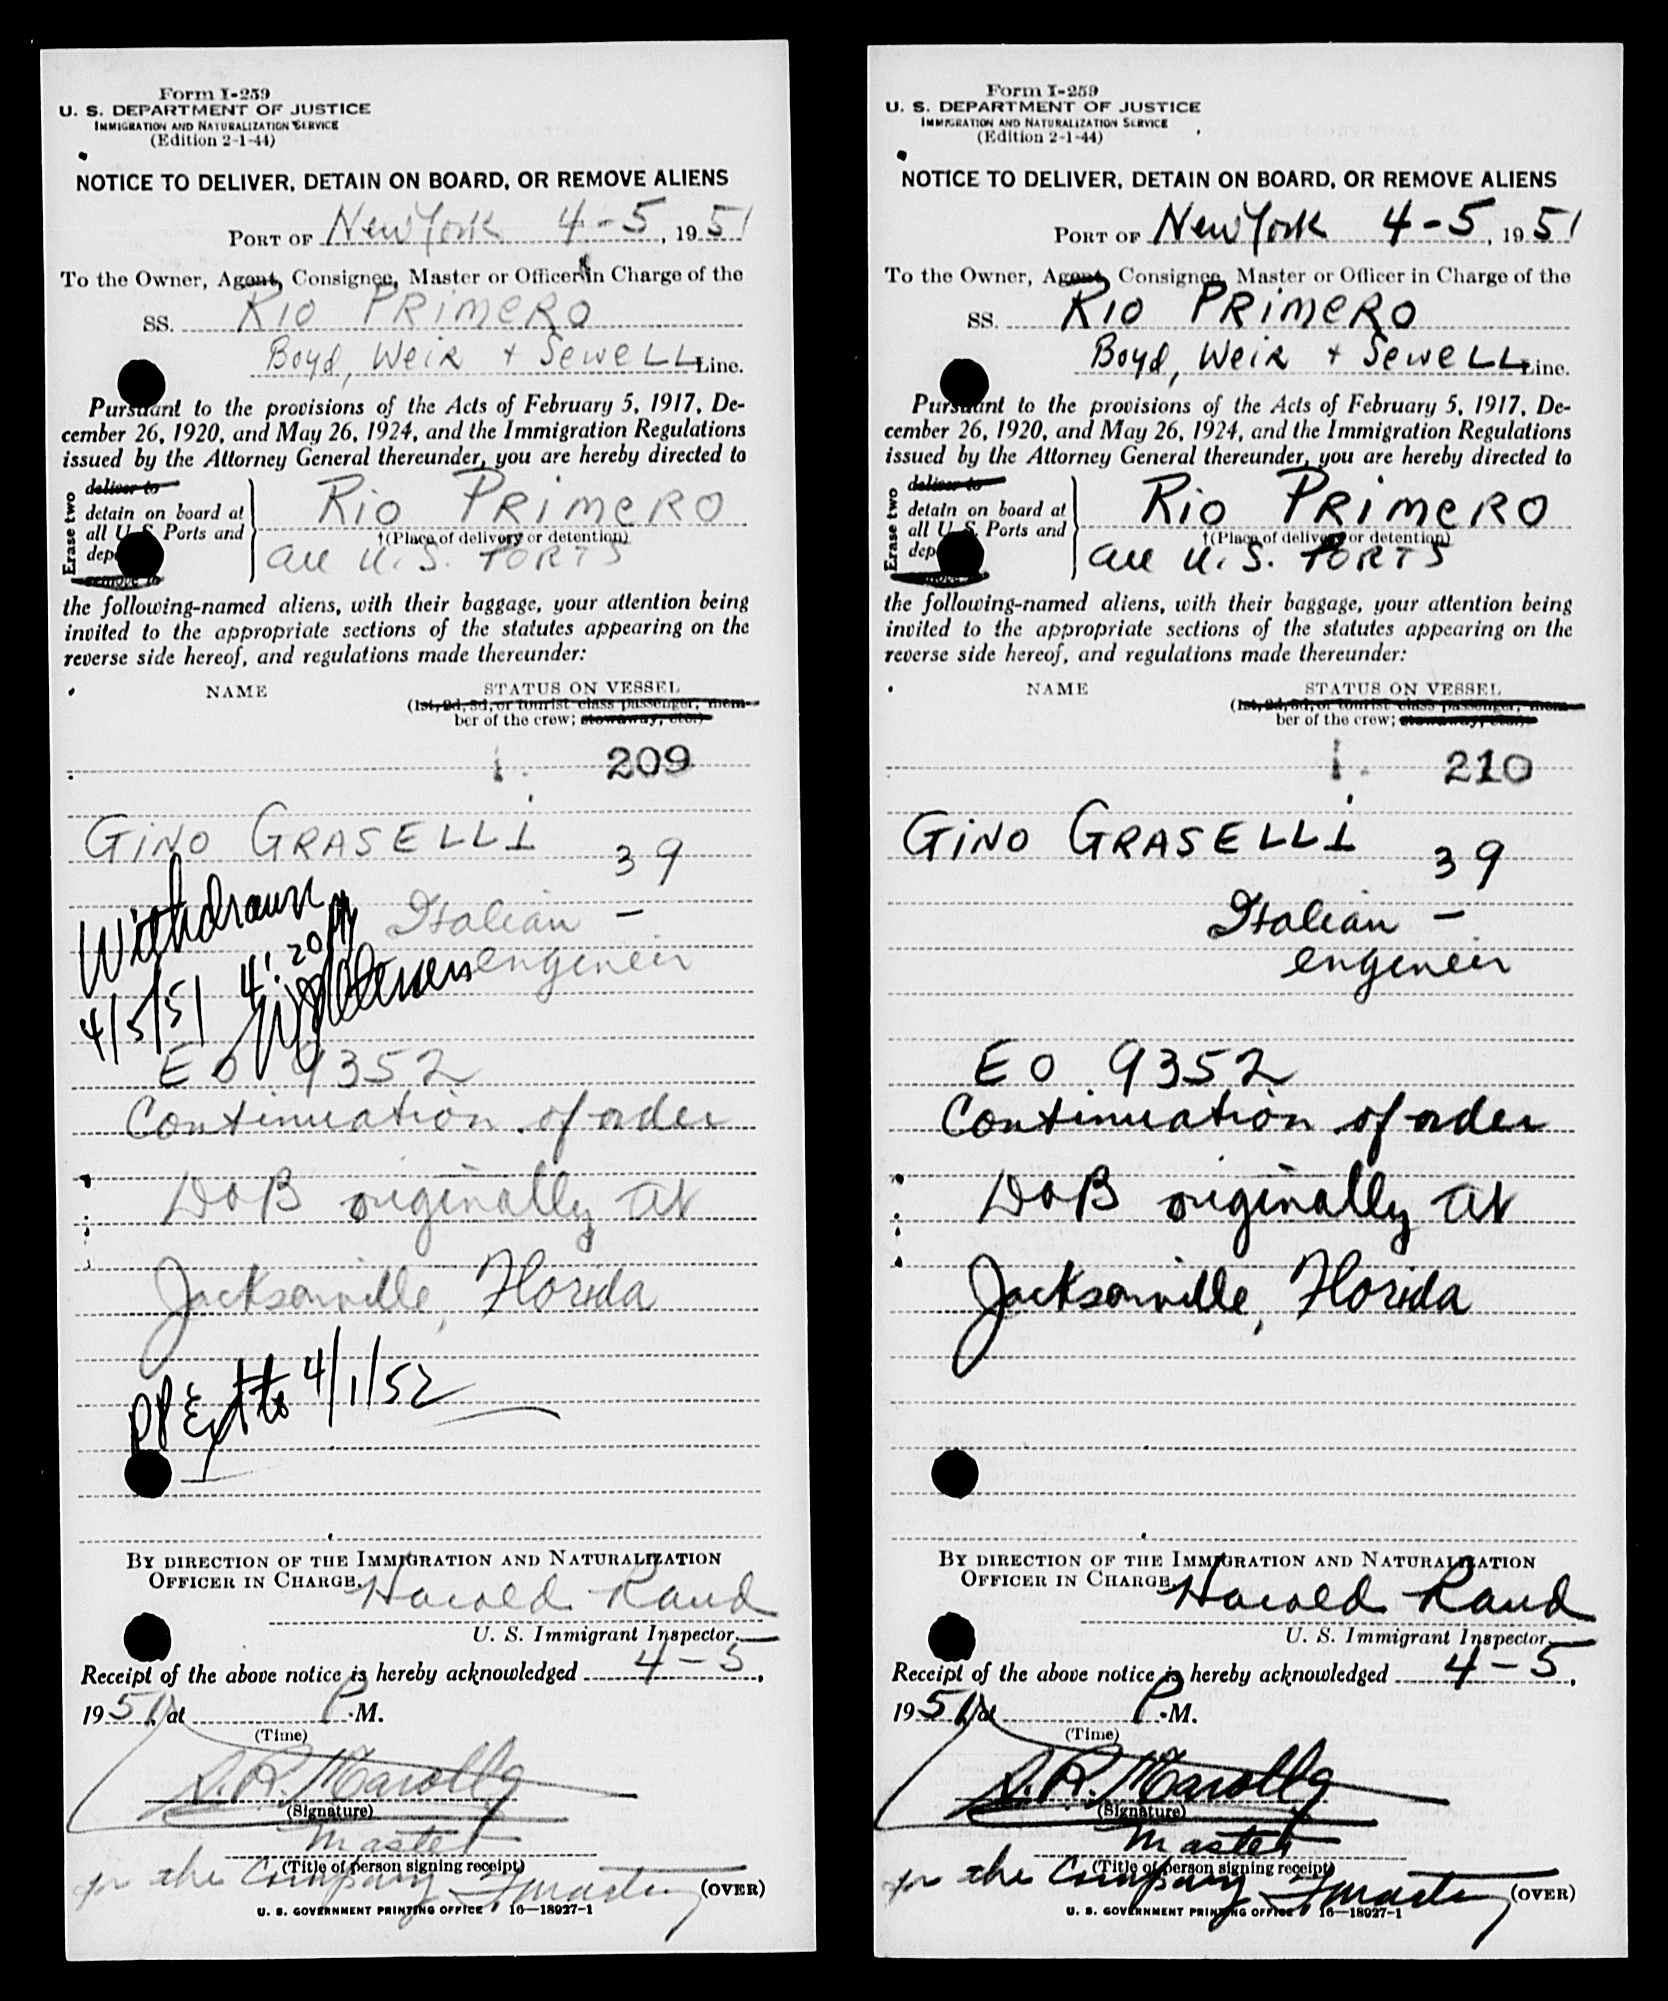 Form I-259
U. S. DEPARTMENT OF JUSTICE
IMMIGRATION AND NATURALIZATION SERVICE
(Edition 2-1-44)
NOTICE TO DELIVER, DETAIN ON BOARD, OR REMOVE ALIENS
PORT OF New York 4-5, 1951
To the Owner, Agent, Consignee, Master or Officer in Charge of the
SS. Rio PRimeRo
Boyd, WeiR + SeweLL Line.
Pursuant to the provisions of the Acts of February 5, 1917, De-
cember 26, 1920, and May 26, 1924, and the Immigration Regulations
issued by the Attorney General thereunder, you are hereby directed to
Erase two
deliver to
detain on board at
all U. S. Ports and
remove to
Rio PRimeRo
†(Place of delivery or detention)
all U.S. PORTS
the following-named aliens, with their baggage, your attention being
invited to the appropriate sections of the statutes appearing on the
reverse side hereof, and regulations made thereunder:
NAME STATUS ON VESSEL
(1st, 2d, 3d, or tourist class passenger; mem-
ber of the crew; stowaway, etc.)
1. 209
GiNO GRASELLI 39
Withdrawn
Italian -
4/5/51 4:20 PM
engineer
EO 9352
Continuation of order
DoB originally at
Jacksonville, Florida
PP Ext to 4/1/52
BY DIRECTION OF THE IMMIGRATION AND NATURALIZATION
OFFICER IN CHARGE.
Harold Rand
U. S. Immigrant Inspector.
Receipt of the above notice is hereby acknowledged 4-5,
1951, at P.M.
(Time)
(Signature)
Master
(Title of person signing receipt)
for the Company
(OVER)
U. S. GOVERNMENT PRINTING OFFICE 16—18927-1
Form I-259
U. S. DEPARTMENT OF JUSTICE
IMMIGRATION AND NATURALIZATION SERVICE
(Edition 2-1-44)
NOTICE TO DELIVER, DETAIN ON BOARD, OR REMOVE ALIENS
PORT OF New York 4-5, 1951
To the Owner, Agent, Consignee, Master or Officer in Charge of the
SS. Rio PRimeRo
Boyd, WeiR + SeweLL Line.
Pursuant to the provisions of the Acts of February 5, 1917, De-
cember 26, 1920, and May 26, 1924, and the Immigration Regulations
issued by the Attorney General thereunder, you are hereby directed to
Erase two
deliver to
detain on board at
all U. S. Ports and
remove to
Rio PRimeRo
†(Place of delivery or detention)
all U.S. PORTS
the following-named aliens, with their baggage, your attention being
invited to the appropriate sections of the statutes appearing on the
reverse side hereof, and regulations made thereunder:
NAME STATUS ON VESSEL
(1st, 2d, 3d, or tourist class passenger; mem-
ber of the crew; stowaway, etc.)
1. 210
GiNO GRASELLI 39
Italian -
engineer
EO 9352
Continuation of order
DoB originally at
Jacksonville, Florida
BY DIRECTION OF THE IMMIGRATION AND NATURALIZATION
OFFICER IN CHARGE.
Harold Rand
U. S. Immigrant Inspector.
Receipt of the above notice is hereby acknowledged 4-5,
1951, at P.M.
(Time)
(Signature)
Master
(Title of person signing receipt)
for the Company
(OVER)
U. S. GOVERNMENT PRINTING OFFICE 16—18927-1